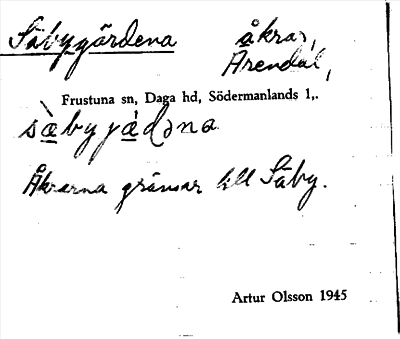 Säbygärdena åkrar,
Arendal,
Frustuna sn, Daga hd, Södermanlands l,.
sàbyjád₎na
Åkrarna gränsar till Säby.
Artur Olsson 1945